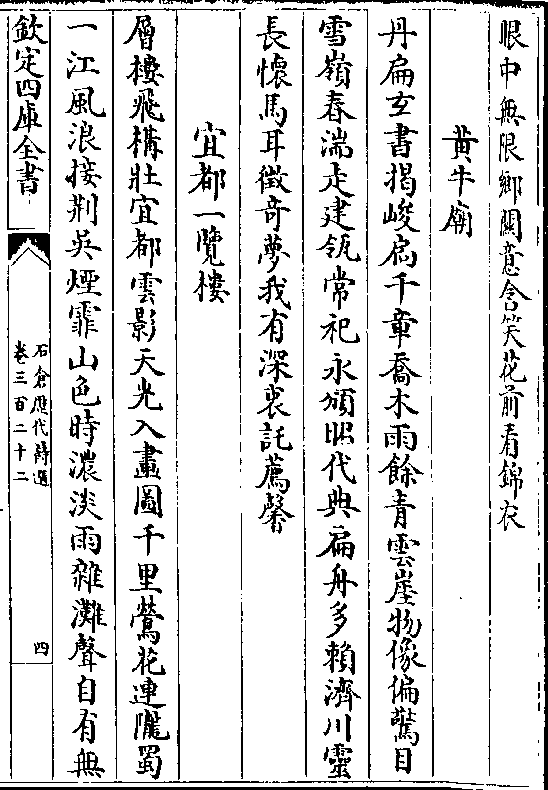 眼中無限鄉關意含笑花前看錦衣
黃牛廟
丹扁玄書揭峻扃千章喬木雨餘青雲崖物像偏驚目
雪嶺春湍走建瓴常祀永頒昭代典扁舟多賴濟川靈
長懷馬耳徵奇夢我有深衷託薦馨
宜都一覽樓
層樓飛構壯宜都雲影天光入畫圖千里鶯花連隴蜀
一江風浪接荆吳煙霏山色時濃淡雨雜灘聲自有無
欽定四庫全書
石倉歷代詩選
卷三百二十二
四